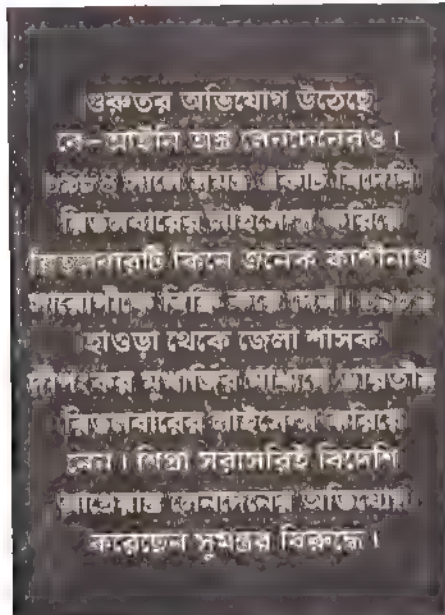 গুরুতর অভিযোগ উঠেছে
বে-আইনি অস্ত্র লেনদেনেরও।
সালে সুমন্ত্র একটি বিদেশি
রিভলবারের লাইসেন্স করিয়ে
রিভলবারটি কিনে জনৈক কাশীনাথ
বিক্রি করে দেন।
হাওড়া থেকে জেলা শাসক
দীপংকর মুখার্জির সাহায্যে ভারতীয়
রিভলবারের লাইসেন্স করিয়ে
নেন। শিপ্রা সরাসরিই বিদেশি
আগ্নেয়াস্ত্র লেনদেনের অভিযোগ
করেছেন সুমন্ত্রর বিরুদ্ধে।